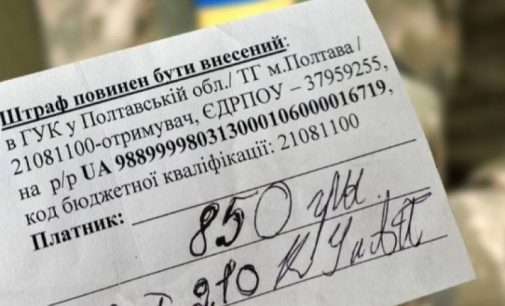 Штраф повинен бути внесений:
в ГУК у Полтавській обл./ ТГ м.Полтава /
21081100-отримувач, ЄДРПОУ – 37959255,
на р/р UA 988999980313000106000016719,
код бюджетної кваліфікації: 21081100
Платник:
850 грн.
210 КУпАП